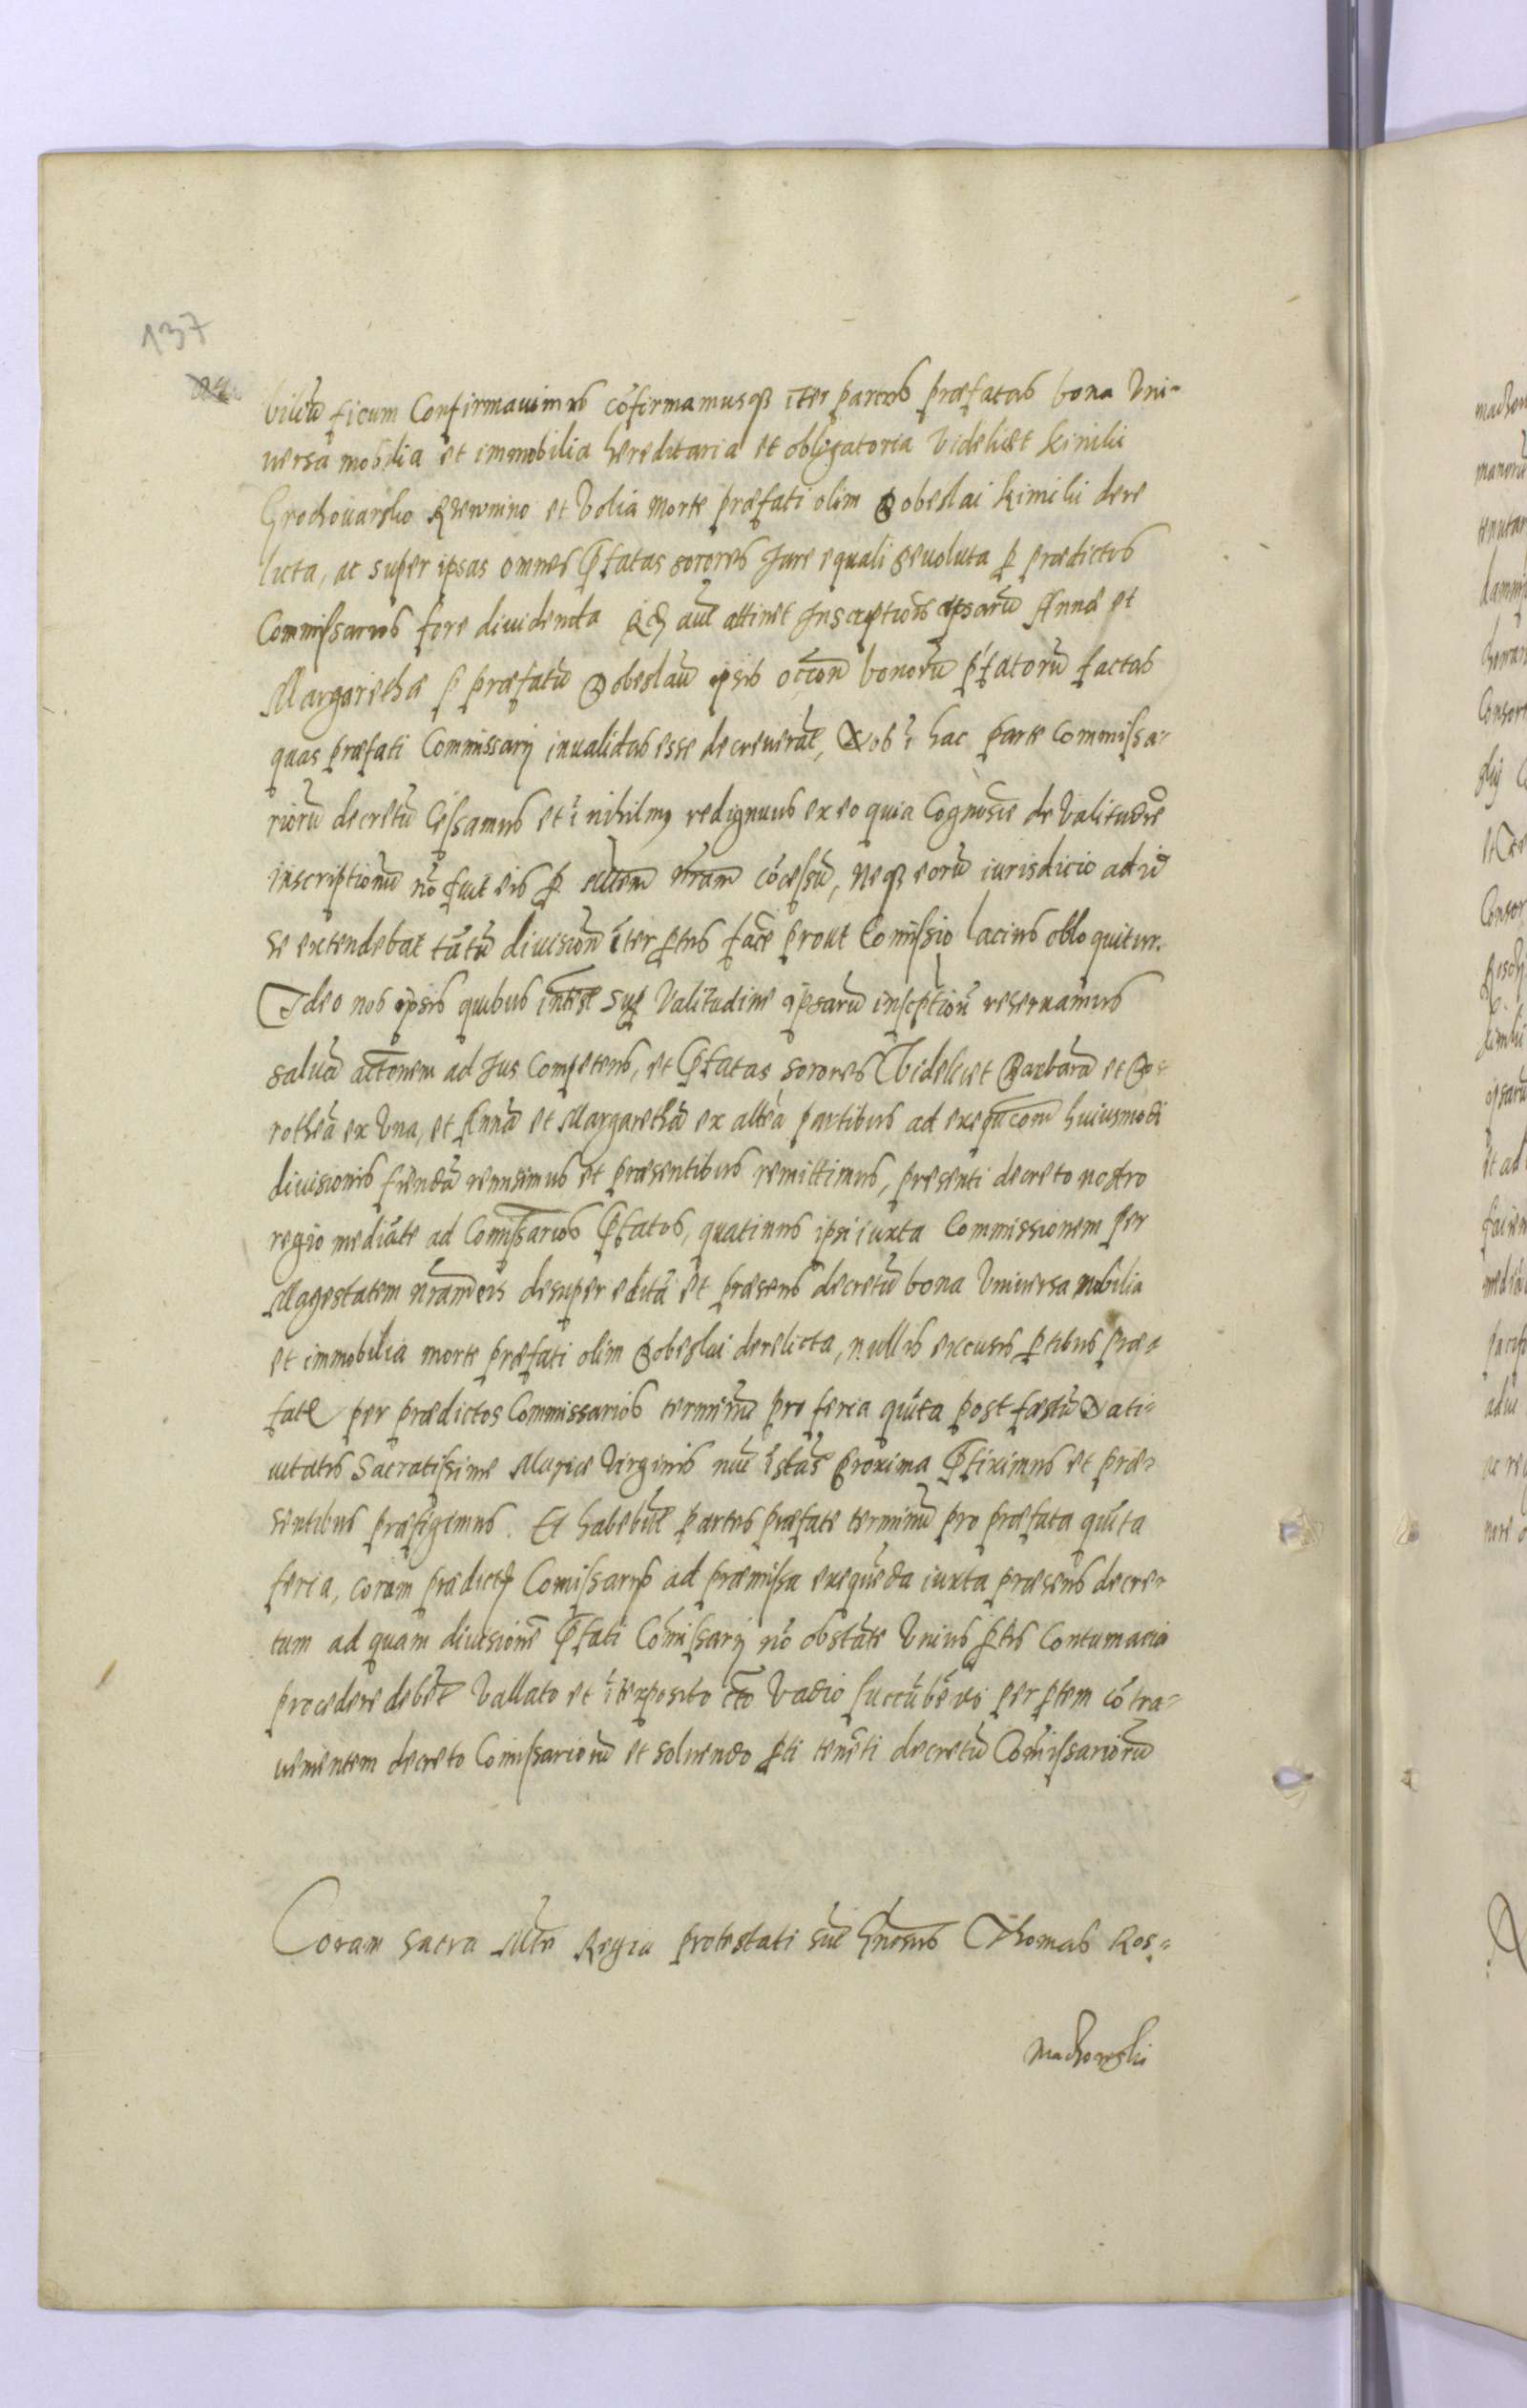 137
bilitũ ficum Confirmauimus cõfirmamusq̃ ĩter partes præfatas bona Vni-
uersa mobilia et immobilia hereditaria et obligatoria Videlicet Kimilii
et Volia morte præfati olim Dobeslai Kimilii dere
licta, ac super ipsas omnes p̃fatas sorores Jure equali deuoluta p̱ prædictos
Commissarios fore diuidenda Qd̃ aũt attinet Inscriptiões ipsarũ Annæ et
Margarethæ p̱ præfatũ Dobeslaũ ipsis bonorũ p̃fatorũ factas
quas præfati Commissarij inualidas esse decreuerũt, Nos ĩ hac parte Commissa-
riorũ decretũ Cessamus et ĩ nihilum redigimus ex eo quia Cognosce de Valitudĩe
inscriptionũ nõ fuit eis p̱ Mtem Nram cõcessũ, Neq̃ eorũ iurisdicio ad id
se extendebat tãtũ diuisionẽ ĩter p̱tes face prout Comissio lacius obloquitur.
Ideo nos ipsis quibus intest sup Valitudine ipsarũ inscptionũ reseruamus
saluã actionem ad Jus Competens, et p̃fatas sorores Videlicet Barbarã et Do-
rotheã ex Vna, et Annã et Margarethã ex alteã partibus ad exequcom huiusmodi
diuisionis fiendã remisimus et præsentibus remittimus, presenti decreto nostro
regio mediãte ad Comissarios p̃fatos, quatinus ipsi iuxta Commissionem per
Magestatem nram eis desuper editã et præsens decretũ bona Vniuersa mobilia
et immobilia morte præfati olim Dobeslai derelicta, nullis excusis p̱tibus præ-
fatæ per prædictos Commissarios terminũ pro feria quĩta post festũ Nati-
uitatis Sacratissime Mariæ Virginis nũc ĩstãs proxima p̃fiximus et præ-
sentibus præfigimus. Et habebũt partes præfate terminũ pro præfata quĩta
feria, coram prædictis Comissarijs ad præmissa exequẽda iuxta præsens decre-
tum ad quam diuisionẽ p̃fati Comissarij nõ obstãte Vnius p̱tis Contumacia
procedere debẽt Vallato et ĩterposito cto Vadio succũbẽdo per p̱tem cõtra-
uenientem decreto Comissariorũ et soluendo p̱ti tenẽti decretũ Comissariorũ
Coram sacra Mte Regia protestati sũt Gñosus Thomas Ros-
machowski